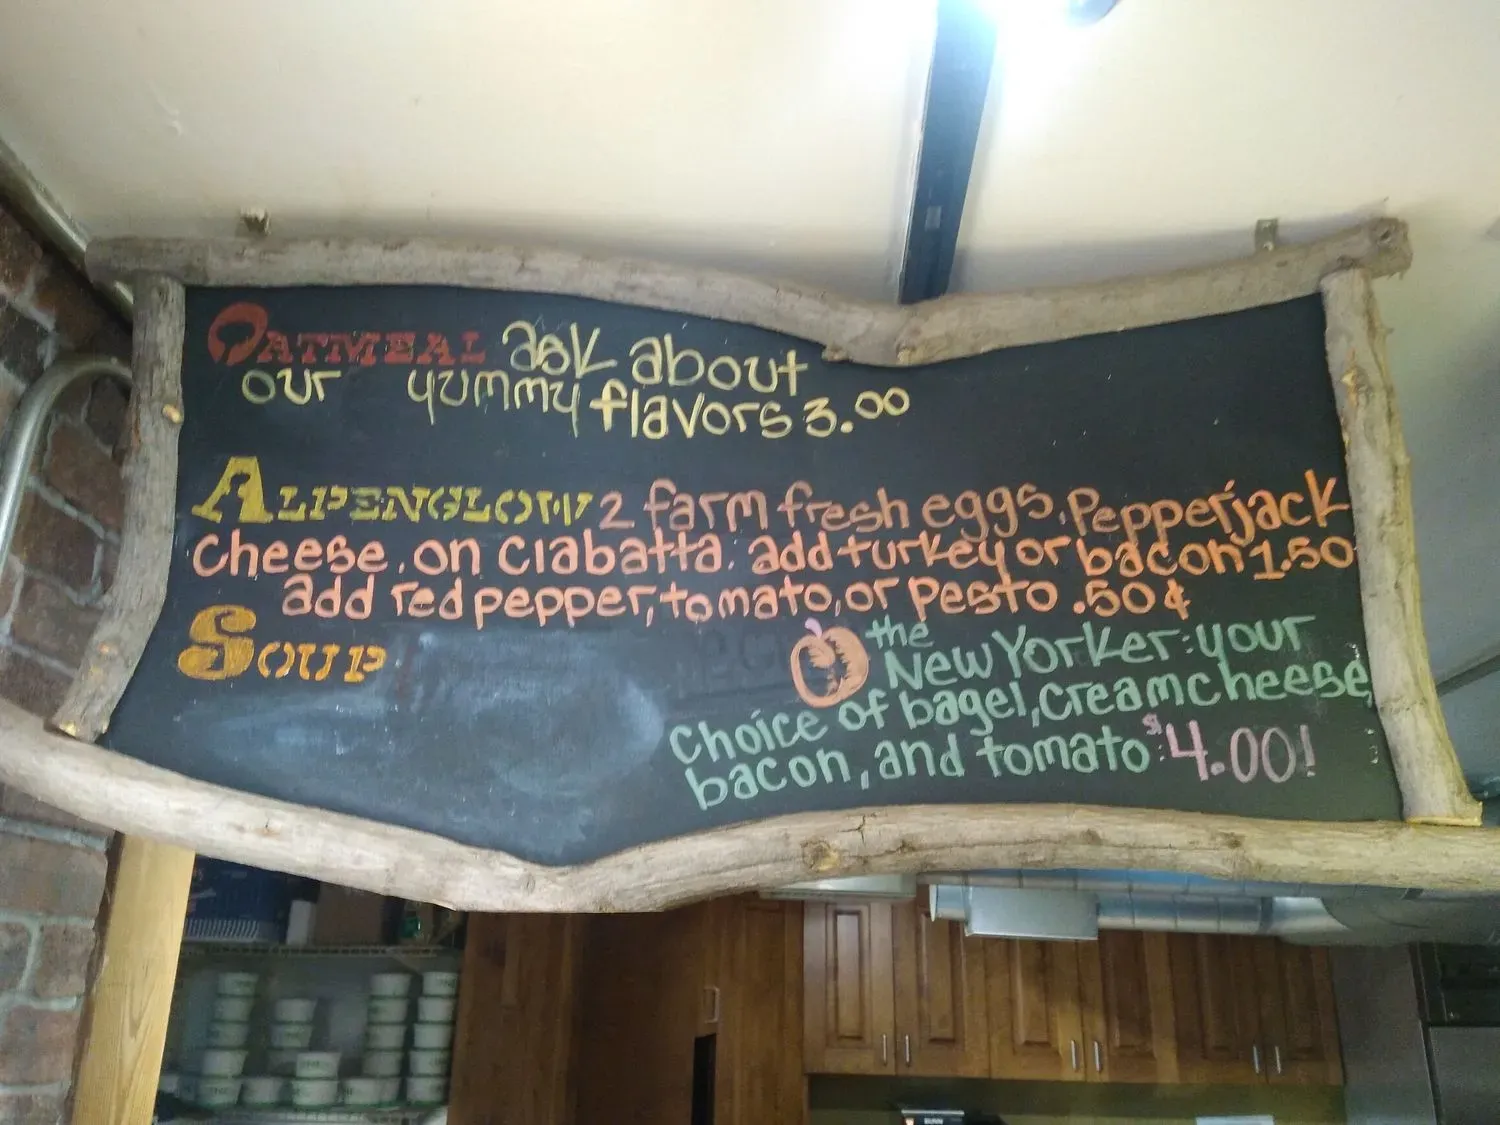 OATMEAL ask about
our yummy flavors 3.00
ALPENGLOW 2 farm fresh eggs. Pepperjack
Cheese, on Ciabatta. add turkey or bacon 1.50
add red pepper, tomato, or pesto .50¢
SOUP
the
New Yorker: your
Choice of bagel, cream cheese,
bacon, and tomato $4.00!